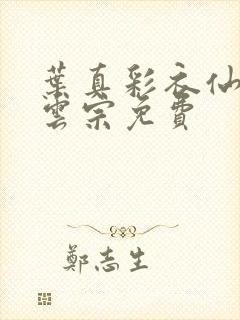 葉真彩衣仙
雲宗免費
鄭志生